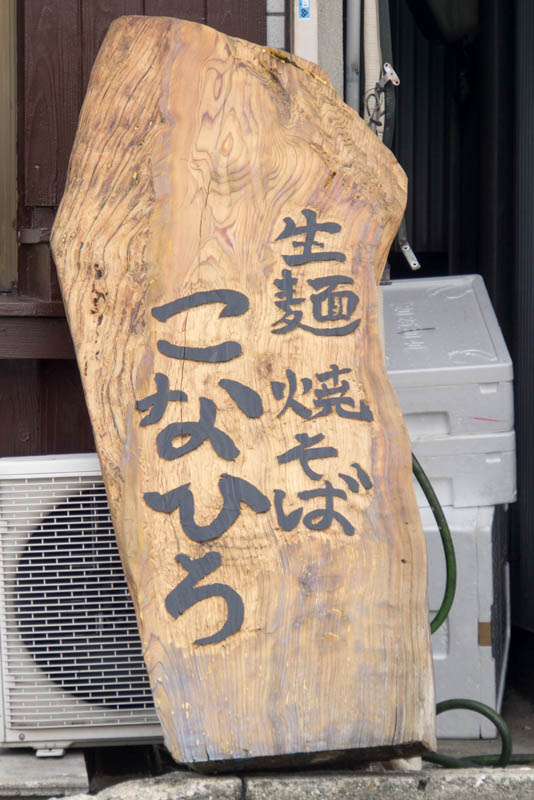 生麺 焼そば
こなひろ